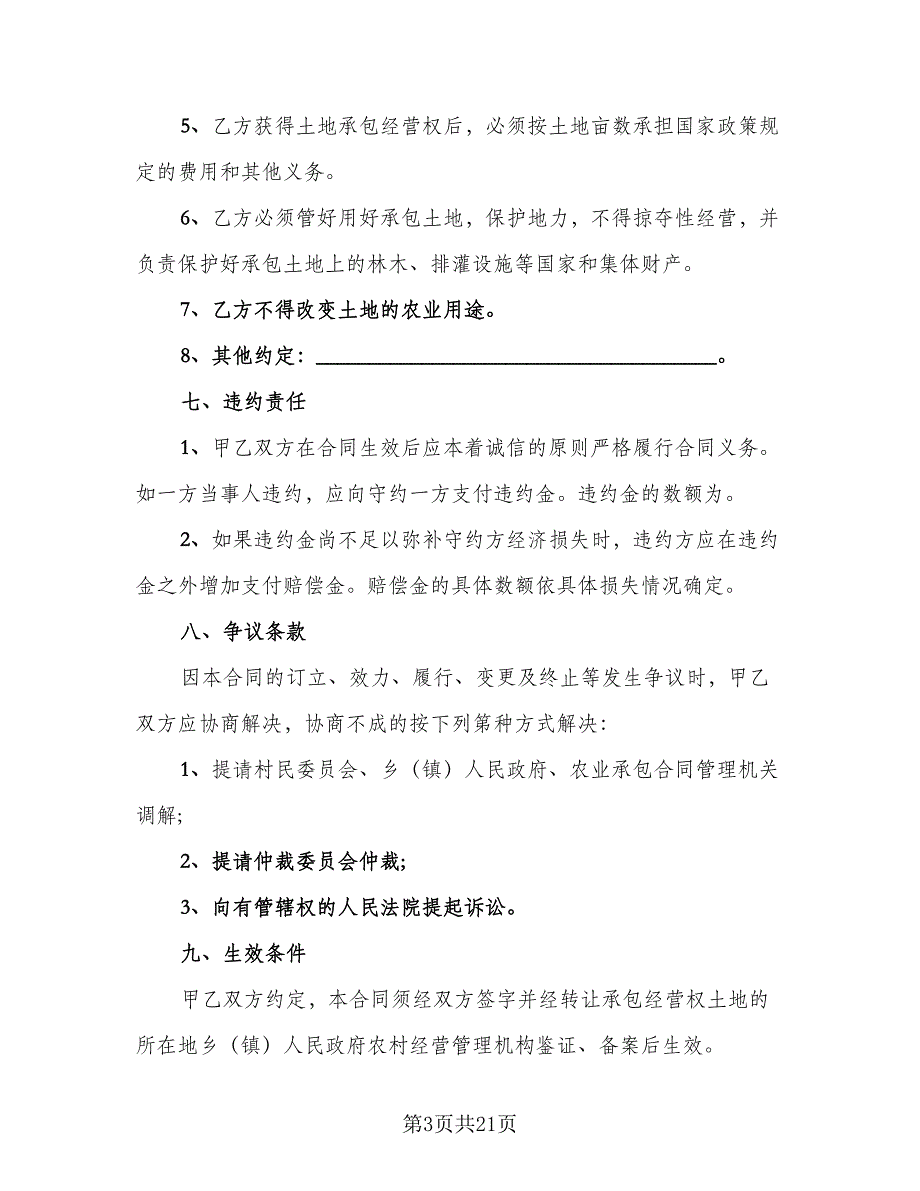 5、乙方获得土地承包经营权后，必须按土地亩数承担国家政策规
定的费用和其他义务。
6、乙方必须管好用好承包土地，保护地力，不得掠夺性经营，并
负责保护好承包土地上的林木、排灌设施等国家和集体财产。
7、乙方不得改变土地的农业用途。
8、其他约定：________________________________________。
七、违约责任
1、甲乙双方在合同生效后应本着诚信的原则严格履行合同义务。
如一方当事人违约，应向守约一方支付违约金。违约金的数额为。
2、如果违约金尚不足以弥补守约方经济损失时，违约方应在违约
金之外增加支付赔偿金。赔偿金的具体数额依具体损失情况确定。
八、争议条款
因本合同的订立、效力、履行、变更及终止等发生争议时，甲乙
双方应协商解决，协商不成的按下列第种方式解决：
1、提请村民委员会、乡（镇）人民政府、农业承包合同管理机关
调解;
2、提请仲裁委员会仲裁;
3、向有管辖权的人民法院提起诉讼。
九、生效条件
甲乙双方约定，本合同须经双方签字并经转让承包经营权土地的
所在地乡（镇）人民政府农村经营管理机构鉴证、备案后生效。
第3页共21页